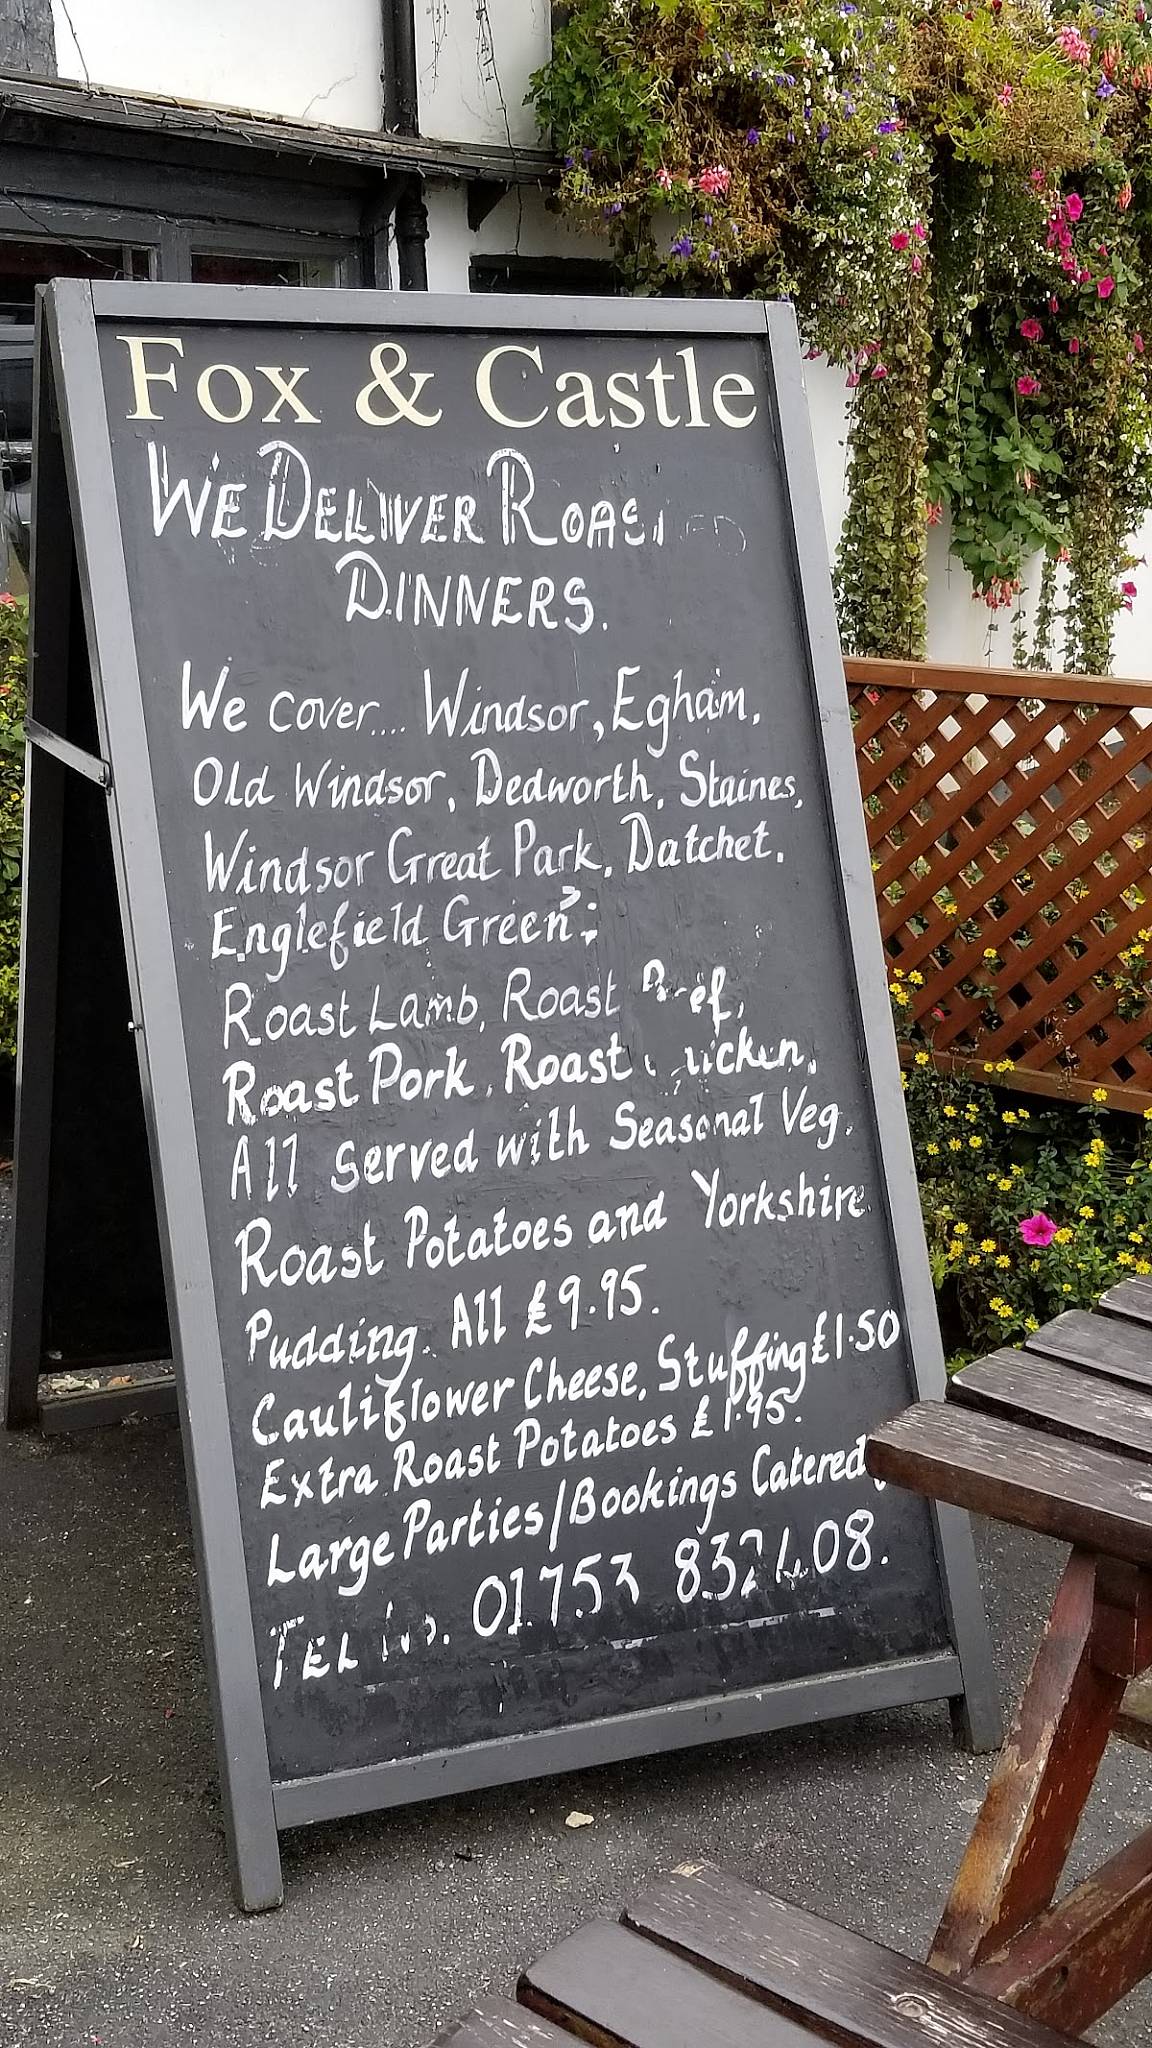 Fox & Castle
WE DELIVER ROAST
DINNERS.
We cover.... Windsor, Egham,
Old Windsor, Dedworth, Staines,
Windsor Great Park, Datchet,
Englefield Green;
Roast Lamb, Roast Beef,
Roast Pork, Roast Chicken,
All Served with Seasonal Veg,
Roast Potatoes and Yorkshire
Pudding. All £9.95.
Cauliflower Cheese, Stuffing £1.50
Extra Roast Potatoes £1.95.
Large Parties/Bookings Catered
TEL No. 01753 832408.